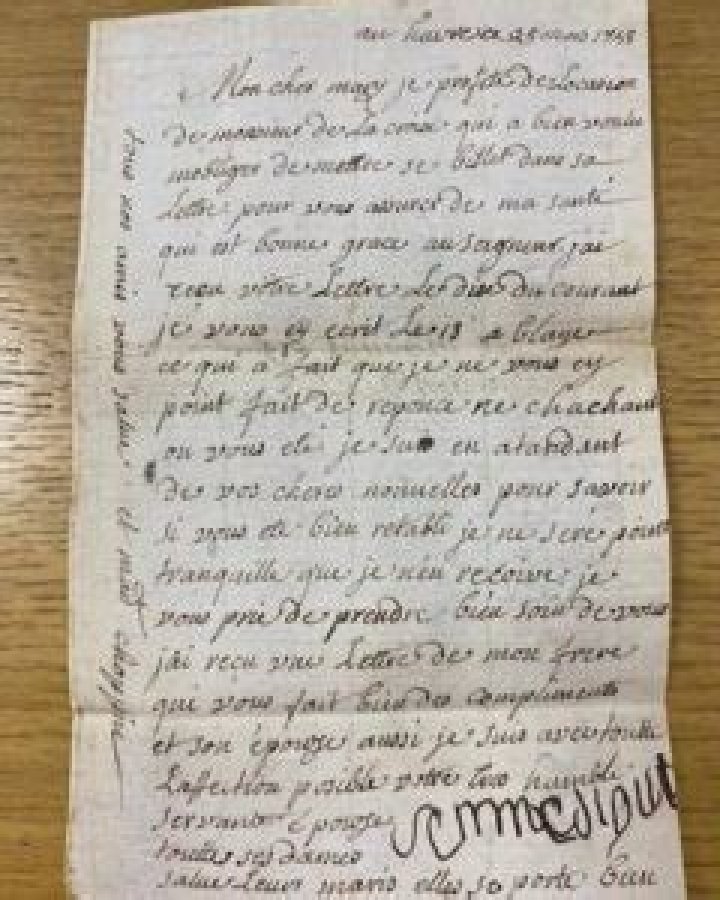 au havre ce 25 mars 1758
Mon cher mary je profite de locasion
de monsieur de La croix qui a bien voulu
mobliger de mettre ce billet dans sa
Lettre pour vous assurer de ma santé
qui est bonne grace au seigneur jai
reçu vôtre Lettre Le dix du courant
je vous ey ecrit Le 13 a blaye
ce qui a fait que je ne vous ey
point fait de reponce ne chachant
ou vous eté je suis en atandant
de vos cheres nouvelles pour savoir
si vous ete bien retabli je ne sere point
tranquille que je nen reçoive je
vous prie de prendre bien soin de vous
jai reçu une Lettre de mon frere
qui vous fait bien des compliments
et son épouze aussi je suis avec toutte
Laffection posible votre tres humble
servante épouze
touttes ses dames
salue Leurs maris elles se porte bien